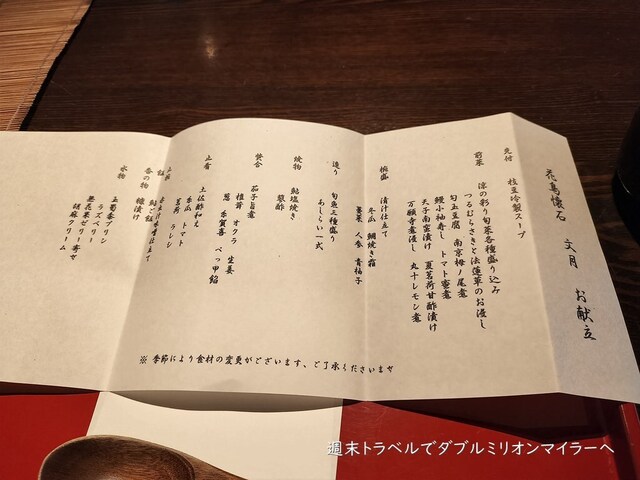 花鳥懐石 文月 お献立
先付 枝豆冷製スープ
前菜 涼の彩り旬菜各種盛り込み
つるむらさきと法蓮草のお浸し
勾玉豆腐 南京栂ノ尾煮
鰻小袖寿し トマト蜜煮
天子南蛮漬け 夏茗荷甘酢漬け
万願寺煮浸し 丸十レモン煮
椀盛 清汁仕立て
冬瓜 鯛焼き霜
人参 青柚子
造り 旬魚三種盛り
あしらい一式
焼物 鮎塩焼き
蓼酢
焚合 茄子旨煮
椎茸 オクラ 生姜
葱 糸賀喜 べっ甲餡
止肴 土佐酢和え
水瓜 トマト
茗荷 ラレシ
鮎ご飯
香の物 糠漬け
水物 玉蜀黍プリン
ラズベリー
無花果ゼリー寄せ
胡麻クリーム
※ 季節により食材の変更がございます、ご了承くださいませ
週末トラベルでダブルミリオンマイラーへ